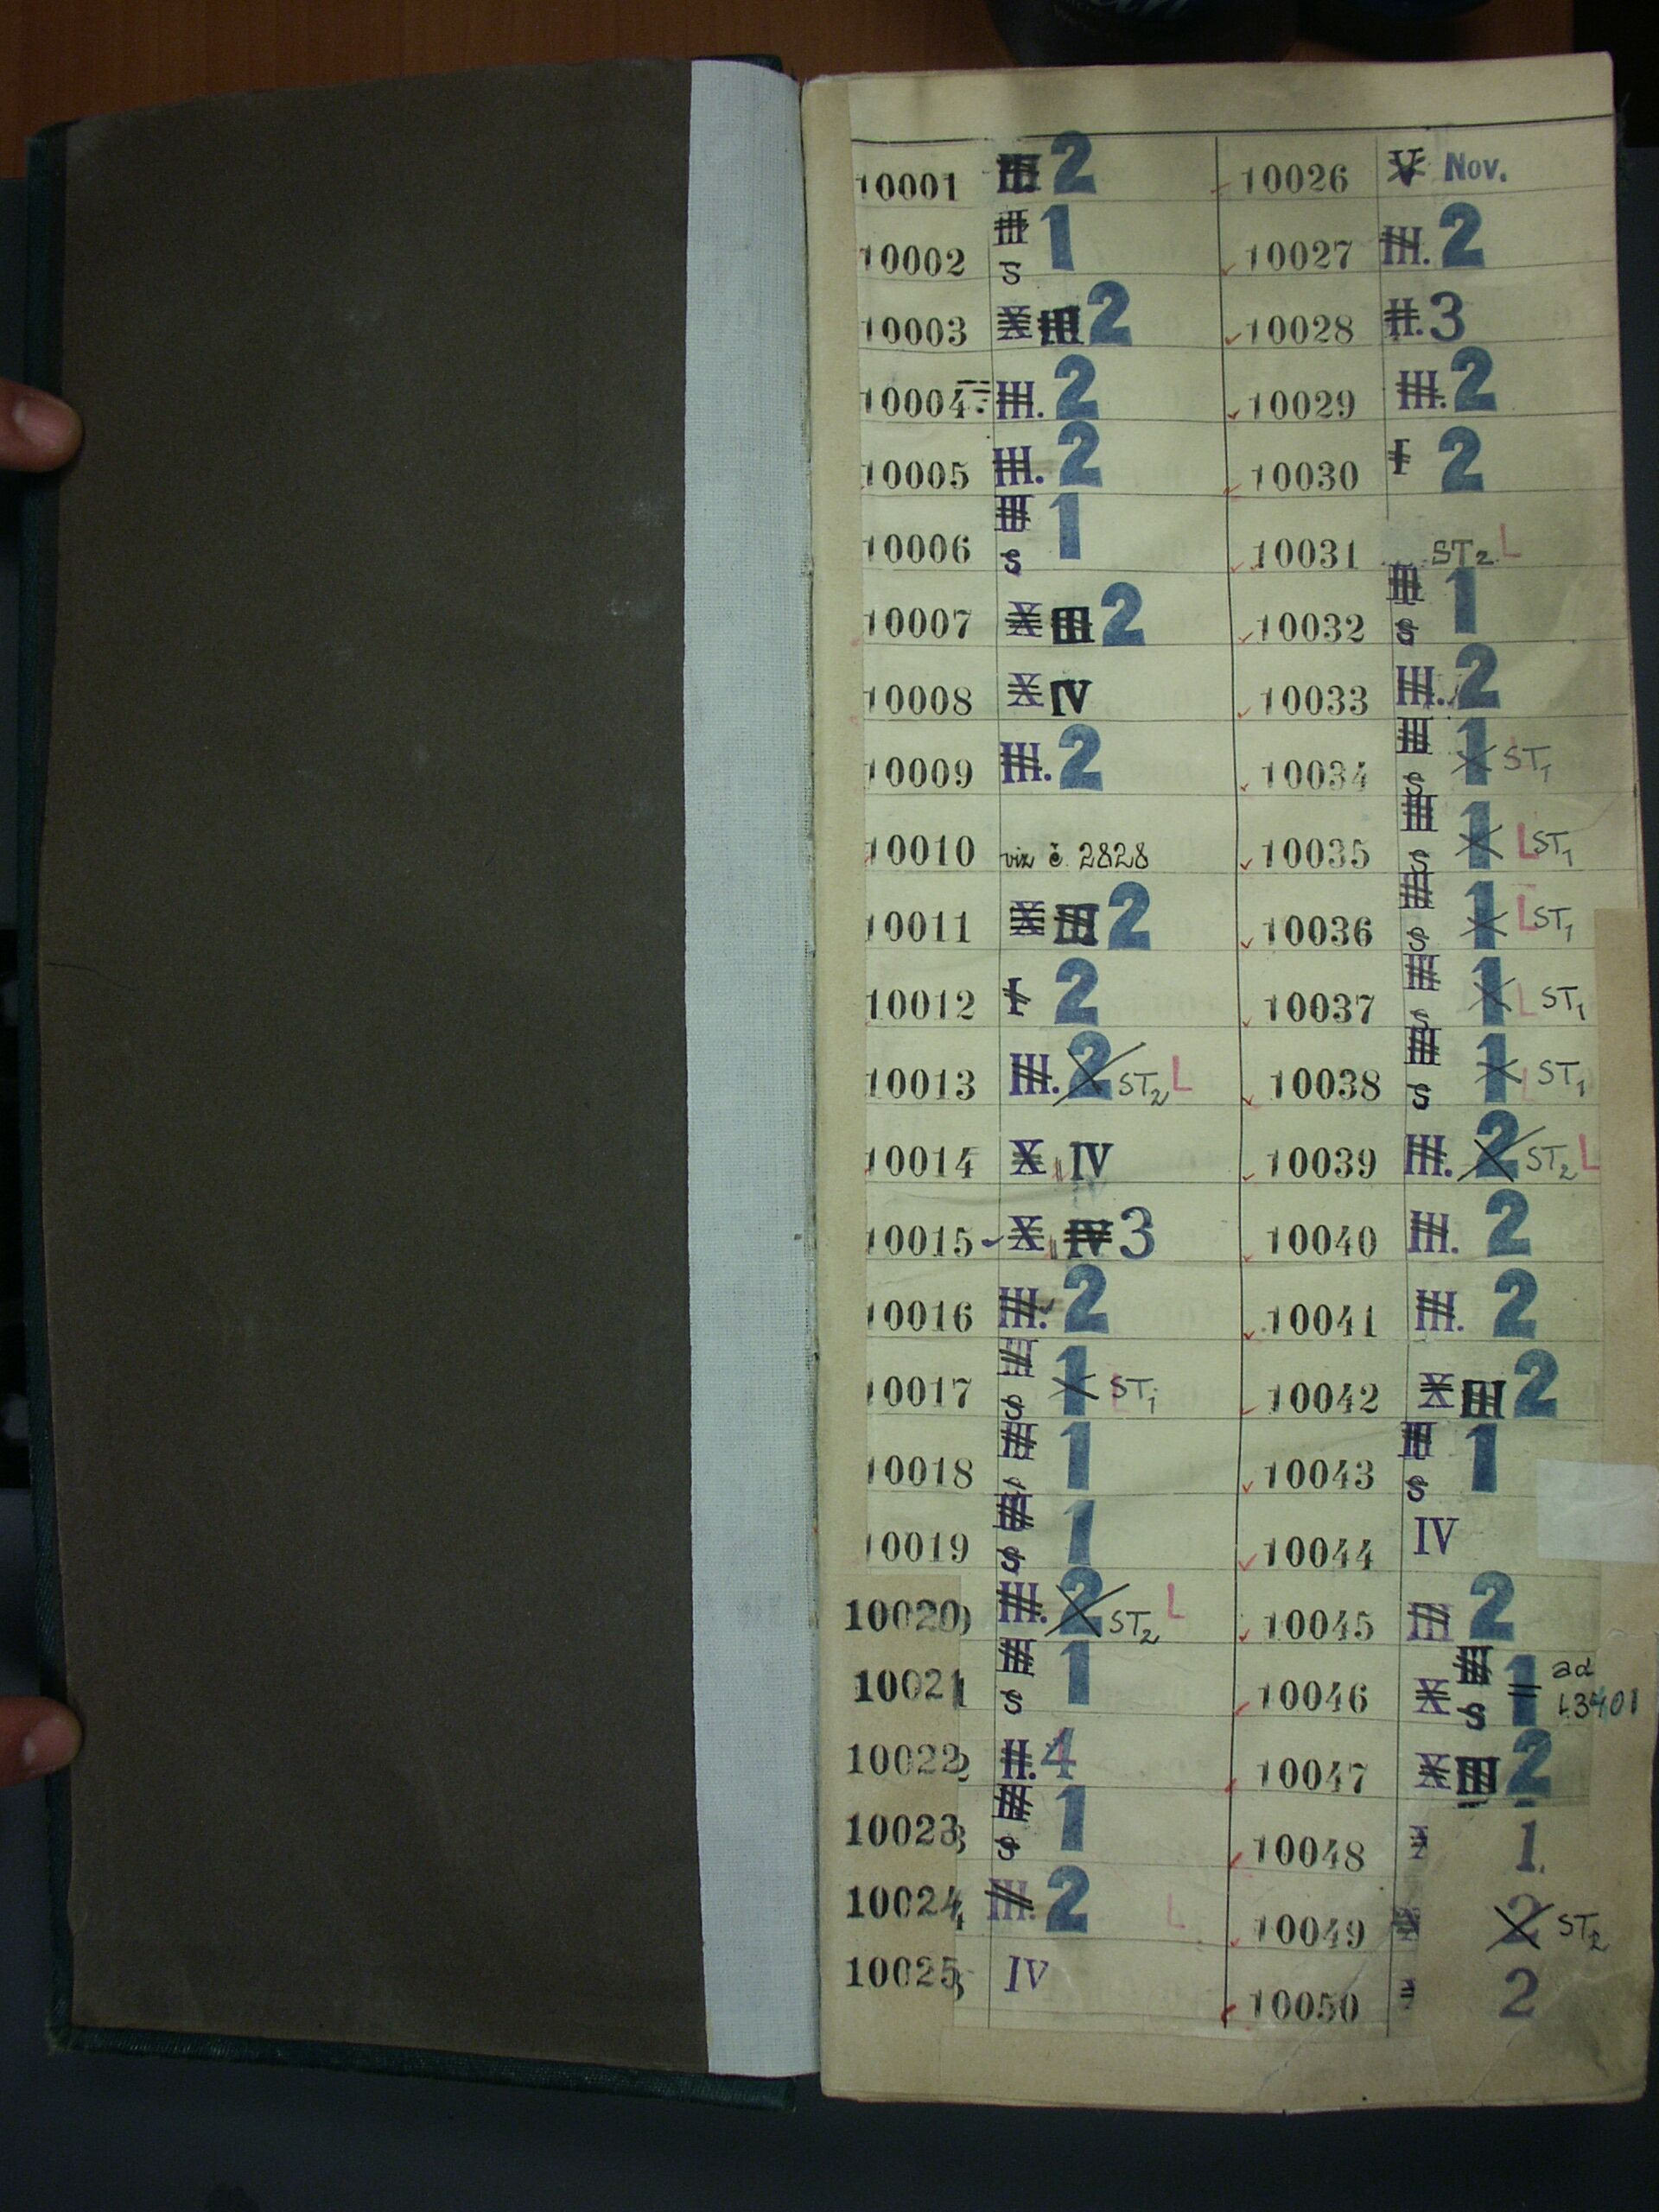 10001 III 2
10002 III S 1
10003 X III 2
10004 III. 2
10005 III. 2
10006 III S 1
10007 X III 2
10008 X IV
10009 III. 2
10010 viz č. 2828
10011 X III 2
10012 I 2
10013 III. 2 ST2 L
10014 X IV
10015 X IV 3
10016 III. 2
10017 III S 1 L ST1
10018 III S 1
10019 III S 1
10020 III. 2 ST2 L
10021 III S 1
10022 II. 4
10023 III S 1
10024 III. 2 L
10025 IV
10026 V Nov.
10027 III. 2
10028 II. 3
10029 III. 2
10030 I 2
10031 ST2 L
10032 III S 1
10033 III. 2
10034 III S 1 L ST1
10035 III S 1 L ST1
10036 III S 1 L ST1
10037 III S 1 L ST1
10038 III S 1 L ST1
10039 III. 2 ST2 L
10040 III. 2
10041 III. 2
10042 X III 2
10043 III S 1
10044 IV
10045 III 2
10046 X III S 1 ad
10047 X III 2
10048 1.
10049 2 ST2
10050 2